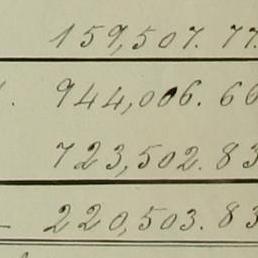 159,507. 77.
1. 944,006. 66
723,502. 83
220,503. 83